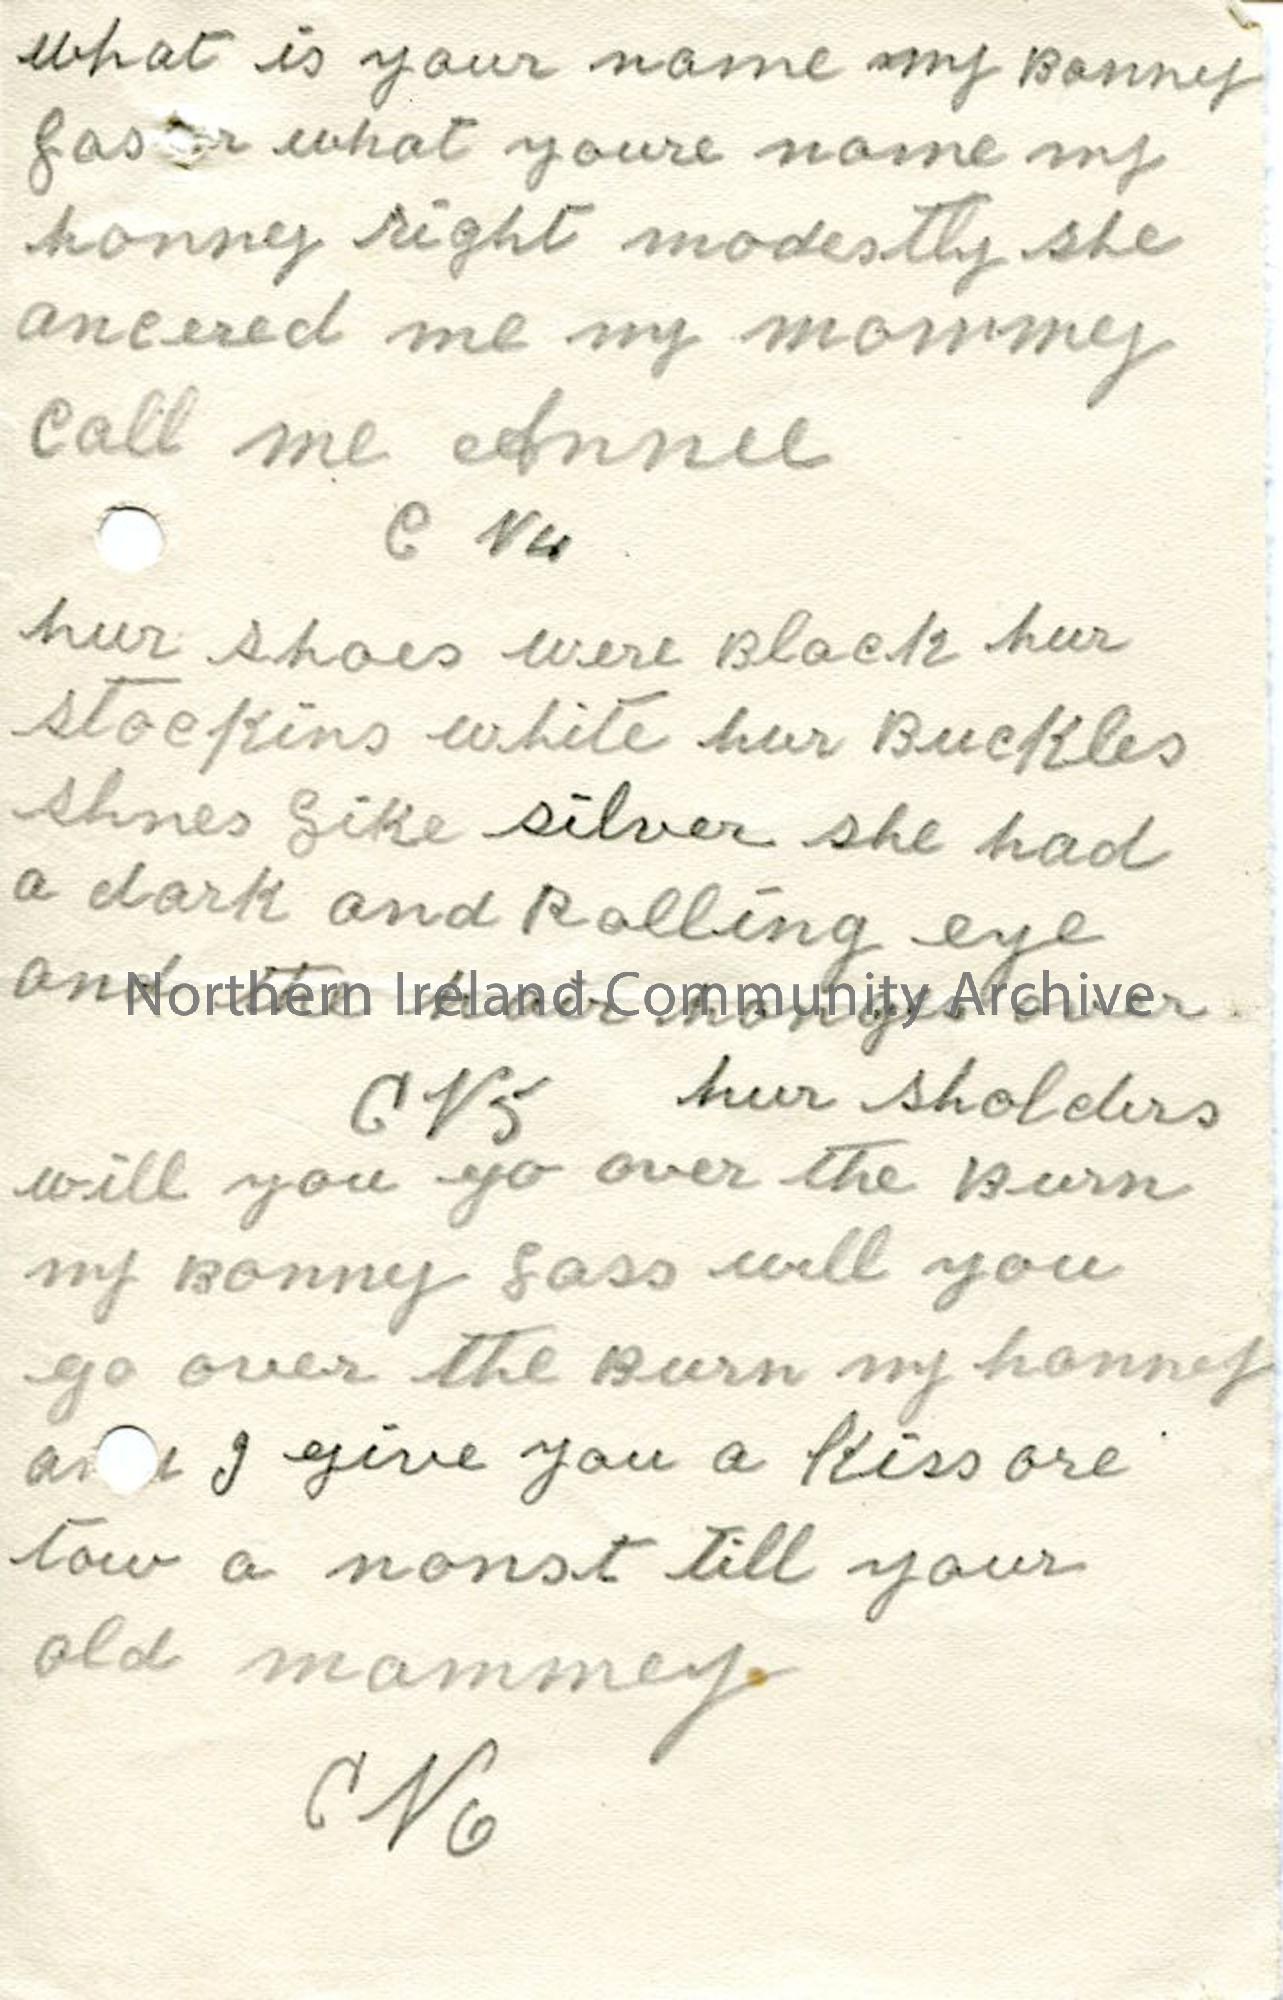 what is your name my Bonney
or what youre name my
honney right modestly she
ancered me my mommey
Call me Annee
C V4
hur shoes were Black hur
stockins white hur Buckles
shnes Like silver she had
a dark and Rolling eye
and hur over
Northern Ireland Community Archive
C V5 hur sholders
will you go over the Burn
my Bonny Lass will you
go over the Burn my honney
and I give you a Kiss ore
tow a nonst till your
old mommey.
C V6